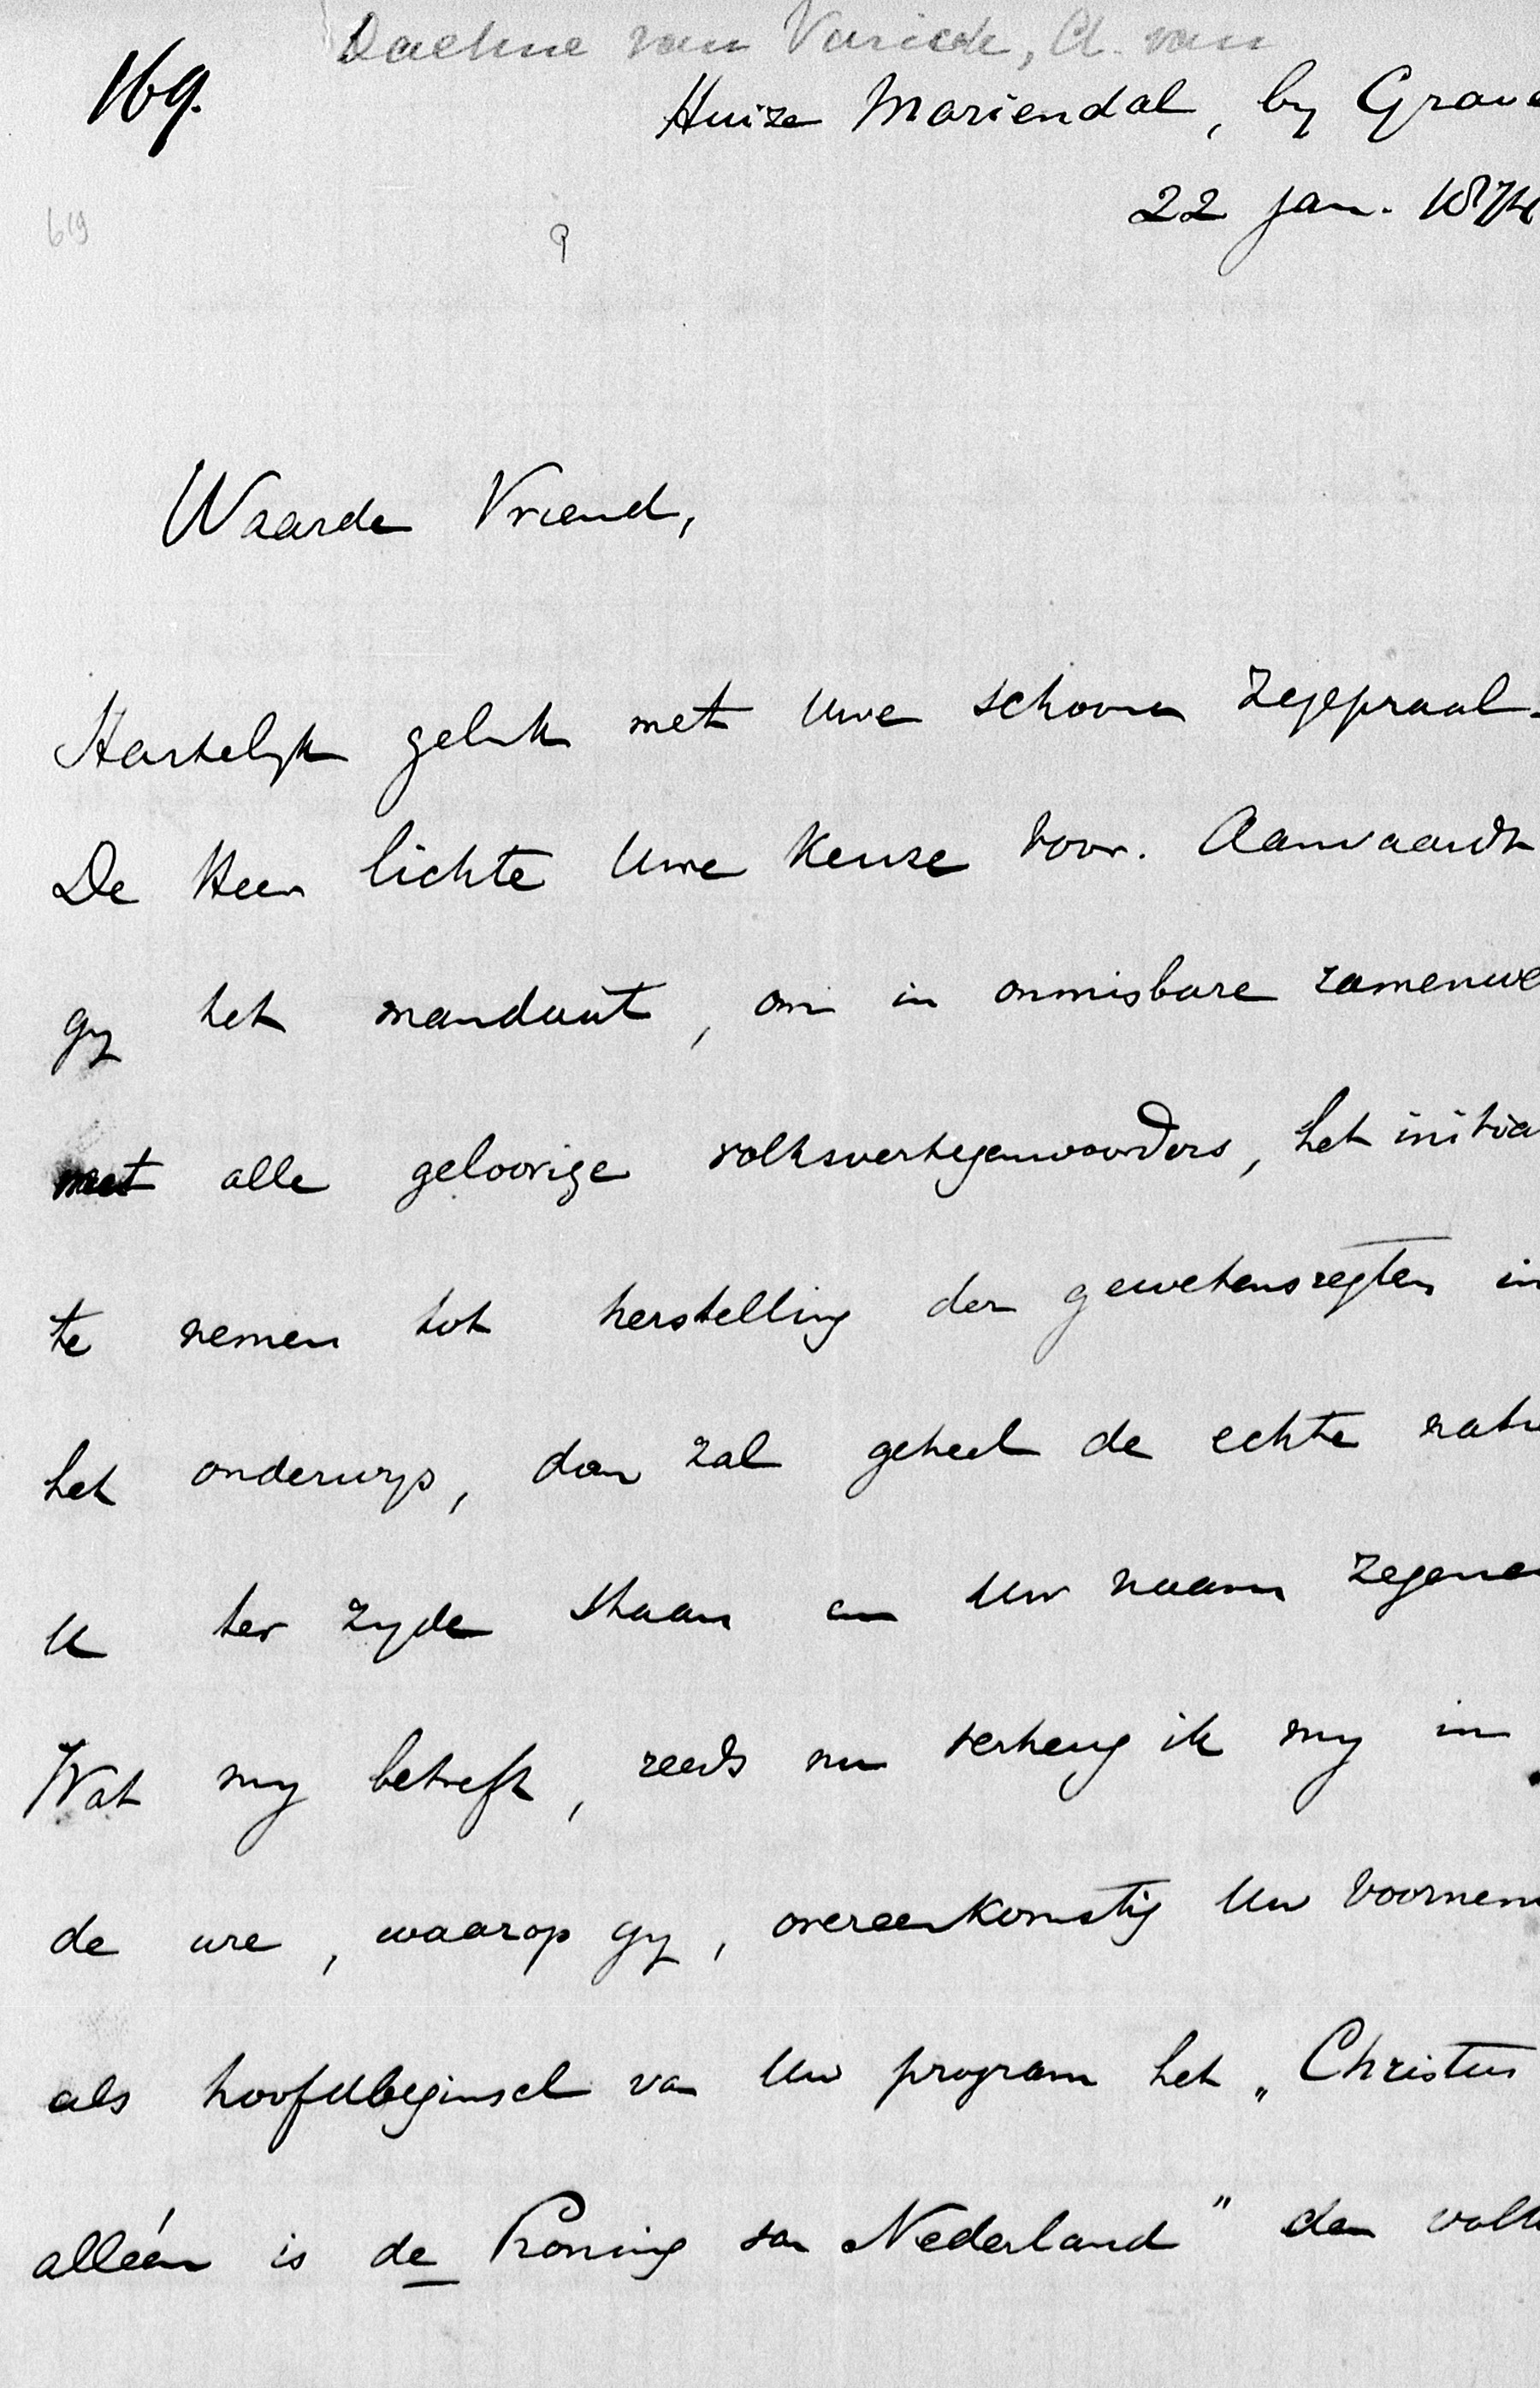 Daehne van Varick, A. van
169.
Huize Mariendal, by Grave
22 jan. 1874
619
Waarde Vriend,
Hartelyk geluk met Uwe schoone zegepraal.
De Heer lichte Uwe keuze voor. Aanvaardt
gy het mandaat, om in onmisbare zamenwe
met alle geloovige volksvertegenwoordigers, het initia
te nemen tot herstelling der gewetensregten in
het onderwys, dan zal geheel de echte natie
U ter zyde staan en Uw naam zegenen
Wat my betreft, reeds nu verheug ik my in
de ure, waarop gy, overeenkomstig Uw voornem
als hoofdbeginsel van Uw program het „Christus
alléén is de Koning van Nederland" den volke